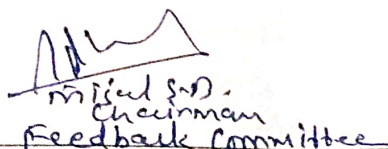 S.D.
Chairman
Feedback Committee